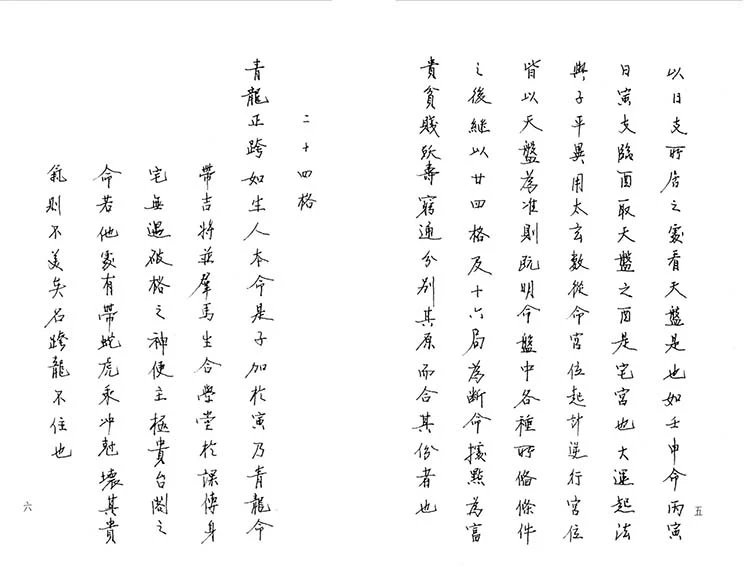 以日支所居之處看天盤是也如壬申命丙寅
日寅支臨酉取天盤之酉是宅宮也大運起法
與子平異用太玄數從命宮位起計逆行宮位
皆以天盤為准則既明命盤中各種所俻條件
之後継以廿四格及十六局為斷命接點為富
貴貧賤殀壽窮通分別其原而合其份者也
五
二十四格
青龍正跨如生人本命是子加於寅乃青龍命
帶吉將並羣馬生合學堂於課傳身
宅無遇破格之神便主極貴台閣之
命若他處有帶蛇虎乘冲尅壞其貴
氣則不美矣名跨龍不住也
六